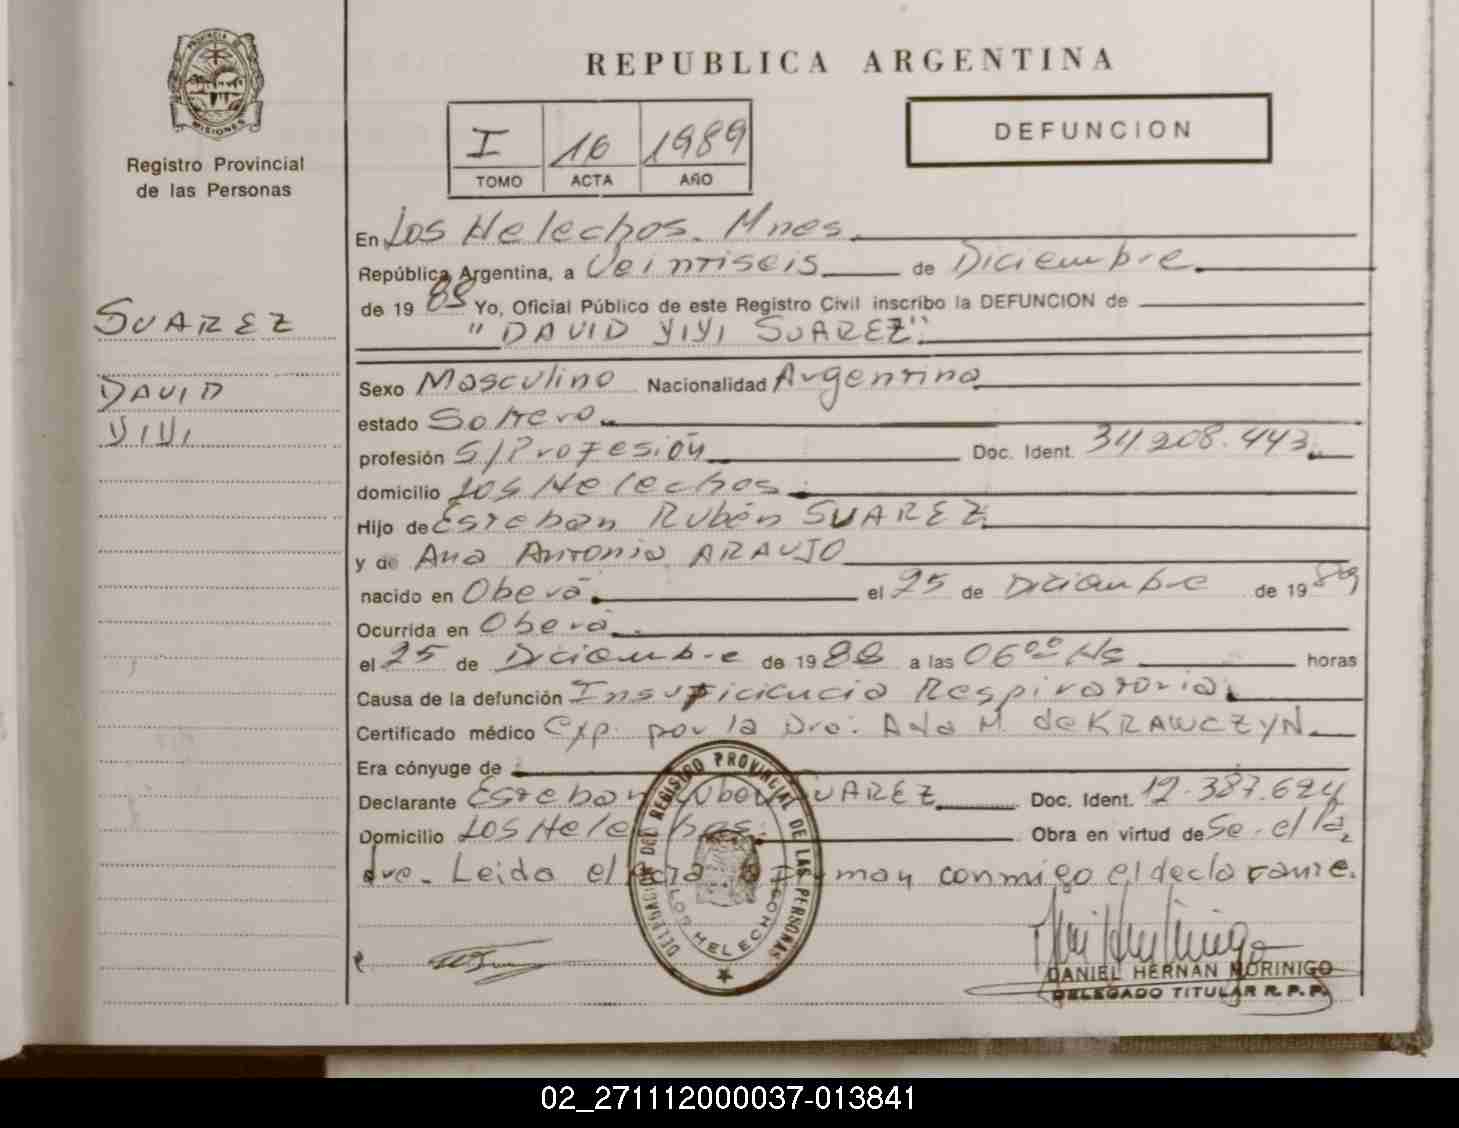 PROVINCIA DE
MISIONES
Registro Provincial
de las Personas
SUAREZ
DAVID
YIYI
REPUBLICA ARGENTINA
I 16 1989
TOMO ACTA AÑO
DEFUNCION
En Los Helechos. Mnes.
República Argentina, a Veintiseis de Diciembre
de 19 89 Yo, Oficial Público de este Registro Civil inscribo la DEFUNCION de
"DAVID YIYI SUAREZ"
Sexo Masculino Nacionalidad Argentina
estado Soltero
profesión S/Profesión Doc. Ident. 34.208.443
domicilio Los Helechos
Hijo de Esteban Rubén SUAREZ
y de Ana Antonia ARAUJO
nacido en Oberá el 25 de Diciembre de 1989
Ocurrida en Oberá
el 25 de Diciembre de 19 a las 06 00 Hs horas
Causa de la defunción Insuficiencia Respiratoria
Certificado médico Exp. por la Dra: Ada M. de KRAWCZYN
Era cónyuge de
Declarante Esteban Ruben SUAREZ Doc. Ident. 12.387.624
Domicilio Los Helechos. Obra en virtud de Se. el Pa
dre. Leida el acta firman conmigo el declarante.
DELEGACION DEL REGISTRO PROVINCIAL DE LAS PERSONAS
LOS HELECHOS
DANIEL HERNAN MORINIGO
DELEGADO TITULAR R.P.P.
02_271112000037-013841